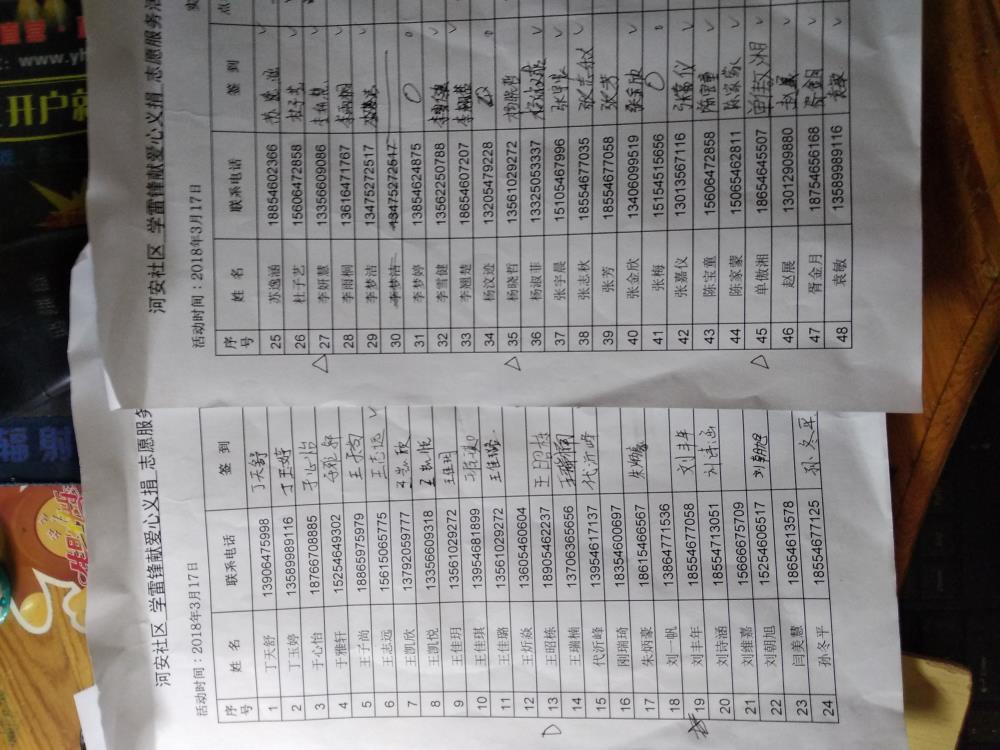 河安社区 学雷锋献爱心义捐 志愿服务
活动时间：2018年3月17日
序号 姓 名 联系电话 签 到
1 丁天舒 13906475998 丁天舒
2 丁玉婷 13589989116 丁玉婷
3 于心怡 18766708885 于心怡
4 于雅轩 15254649302
5 王子尚 18865975979 王子尚
6 王志远 15615065775 王志远
7 王凯欣 13792059777 王凯欣
8 王凯悦 13356609318 王凯悦
9 王佳玥 13561029272 王佳玥
10 王佳琪 13954681899
11 王佳璐 13561029272 王佳璐
12 王炘焱 13605460604
13 王昭栋 18905462237 王昭栋
14 王瑞楠 13706365656 王瑞楠
15 代沂峰 13954617137 代沂峰
16 刚瑞琦 18354600697
17 朱炳豪 18615466567 朱炳豪
18 刘一帆 13864771536
19 刘丰年 18554677058 刘丰年
20 刘诗涵 18554713051 刘诗涵
21 刘维嘉 15666675709
22 刘朝旭 15254606517 刘朝旭
23 闫美慧 18654613578
24 孙冬平 18554677125 孙冬平
河安社区 学雷锋献爱心义捐 志愿服务活
活动时间：2018年3月17日
序号 姓 名 联系电话 签 到 点
25 苏逸涵 18854602366 苏逸涵
26 杜子艺 15606472858 杜子艺
27 李妍慧 13356609086 李妍慧
28 李雨桐 13616471767 李雨桐
29 李梦洁 13475272517
30 李梦洁 13475272517
31 李梦婷 13854624875
32 李雪健 13562250788 李雪健
33 李翘楚 18654607207 李翘楚
34 杨汶迹 13205479228
35 杨晓哲 13561029272 杨晓哲
36 杨淑菲 13325053337 杨淑菲
37 张宇晨 15105467996 张宇晨
38 张志秋 18554677035 张志秋
39 张芳 18554677058 张芳
40 张金欣 13406099519 张金欣
41 张梅 15154515656
42 张嘉仪 13013567116 张嘉仪
43 陈宝童 15606472858 陈宝童
44 陈家蒙 15065462811 陈家蒙
45 单傲湘 18654645507 单傲湘
46 赵展 13012909880 赵展
47 胥金月 18754656168 胥金月
48 袁敏 13589989116 袁敏
www.yh
开户就